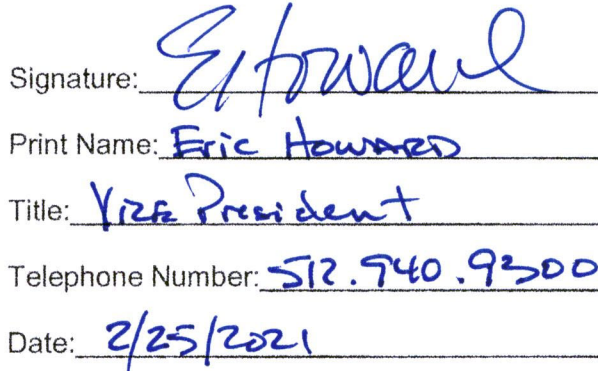 Signature: EHoward
Print Name: Eric Howard
Title: Vice President
Telephone Number: 512.940.9300
Date: 2/25/2021